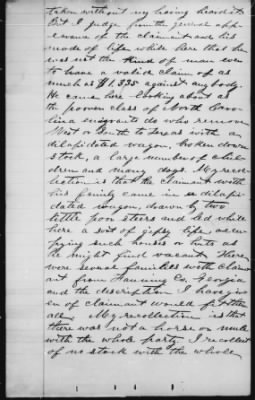 taken without my having heard it
But I judge from the general app-
earance of the claimant and his
mode of life while here that he
was not the kind of man even
to have a valid claim of as
much as $1,335 against any body.
He came here looking about as
the poorer class of North Caro
lina emigrants do who remove
West or South to Texas with an
dilapidated wagon, broken down
stock, a large number of chil
dren and many dogs. My recol
lection is that the Claimant with
his family came in a dilapi
dated wagon, drawn by two
little poor steers and led while
here a sort of gipsy life, occu
pying such houses or huts as
he might find vacant. There
were several families with Claim
ant from Fannin Co. Georgia
and the description I have giv
en of claimant would fit them
all. My recollection is that
there was not a horse or mule
with the whole party. I recollect
of no stock with the whole